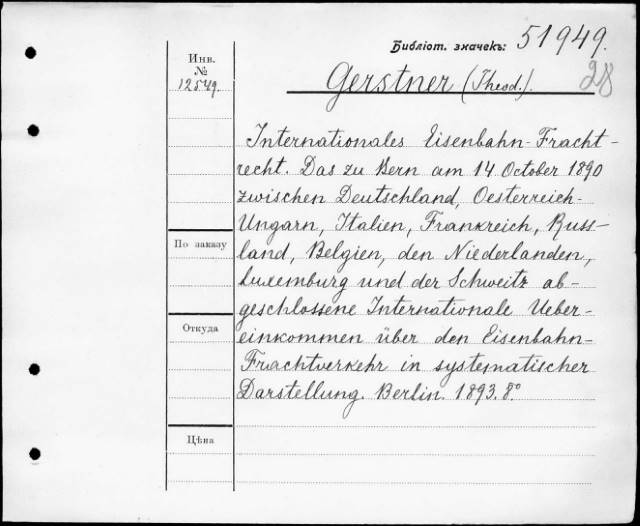 Библіот. значекъ: 51949.
28
Инв.
№
12549.
Gerstner (Theod.).
Internationales Eisenbahn-Fracht-
recht. Das zu Bern am 14 October 1890
zwischen Deutschland, Oesterreich-
Ungarn, Italien, Frankreich, Russ-
land, Belgien, den Niederlanden,
Luxemburg und der Schweitz ab-
geschlossene Internationale Ueber-
einkommen über den Eisenbahn-
Frachtverkehr in systematischer
Darstellung. Berlin. 1893. 8°
По заказу
Откуда
Цѣна